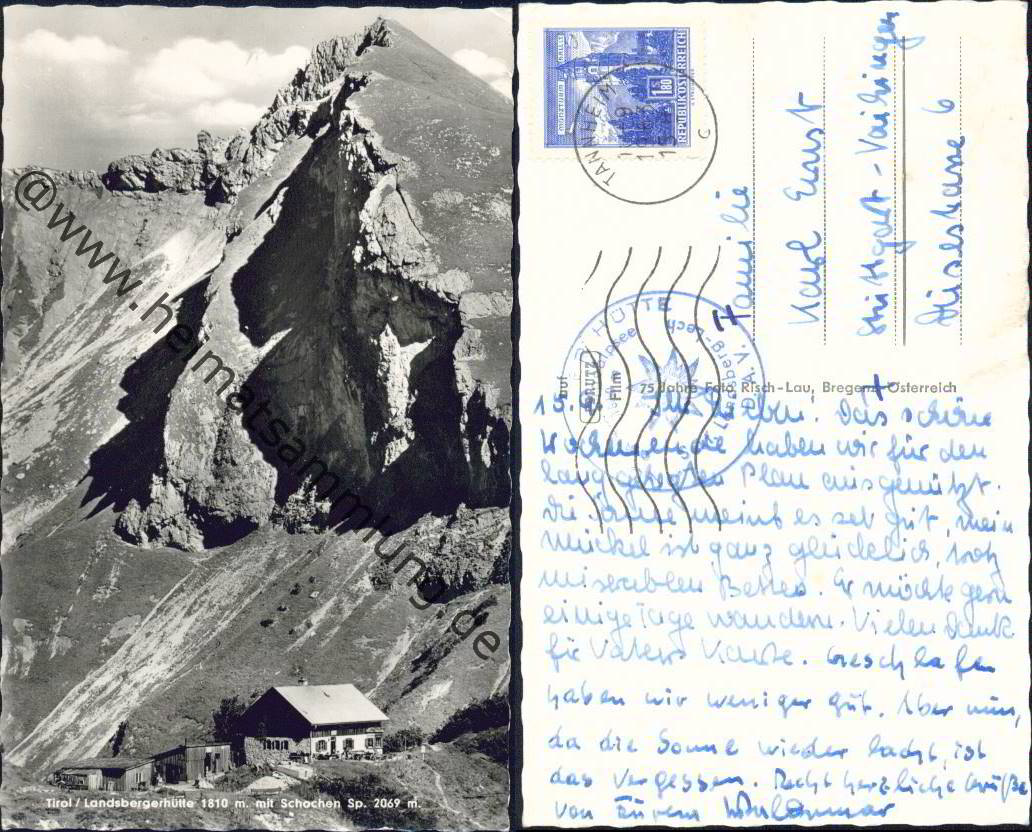 Tirol / Landsbergerhütte 1810 m. mit Schochen Sp. 2069 m.
@www.heimatsammlung.de
1.80
REPUBLIK ÖSTERREICH
TANNHEIM
c
HÜTTE
Landsberg-Lech
D.A.V.
auf
Film
75 Jahre Foto Risch-Lau, Bregenz Österreich
Familie
Karl Ernst
Stuttgart-Vaihingen
6
15. Das schöne
Wochenende haben wir für den
langgehegten Plan ausgenützt.
Die Sonne meint es sehr gut, mein
Mückel ist ganz glücklich, trotz
miserablen Betten. Er möchte gern
einige Tage wandern. Vielen Dank
für Vaters Karte. Geschlafen
haben wir weniger gut. Aber nun,
da die Sonne wieder lacht, ist
das vergessen. Recht herzliche Grüße
von Eurem Waldemar